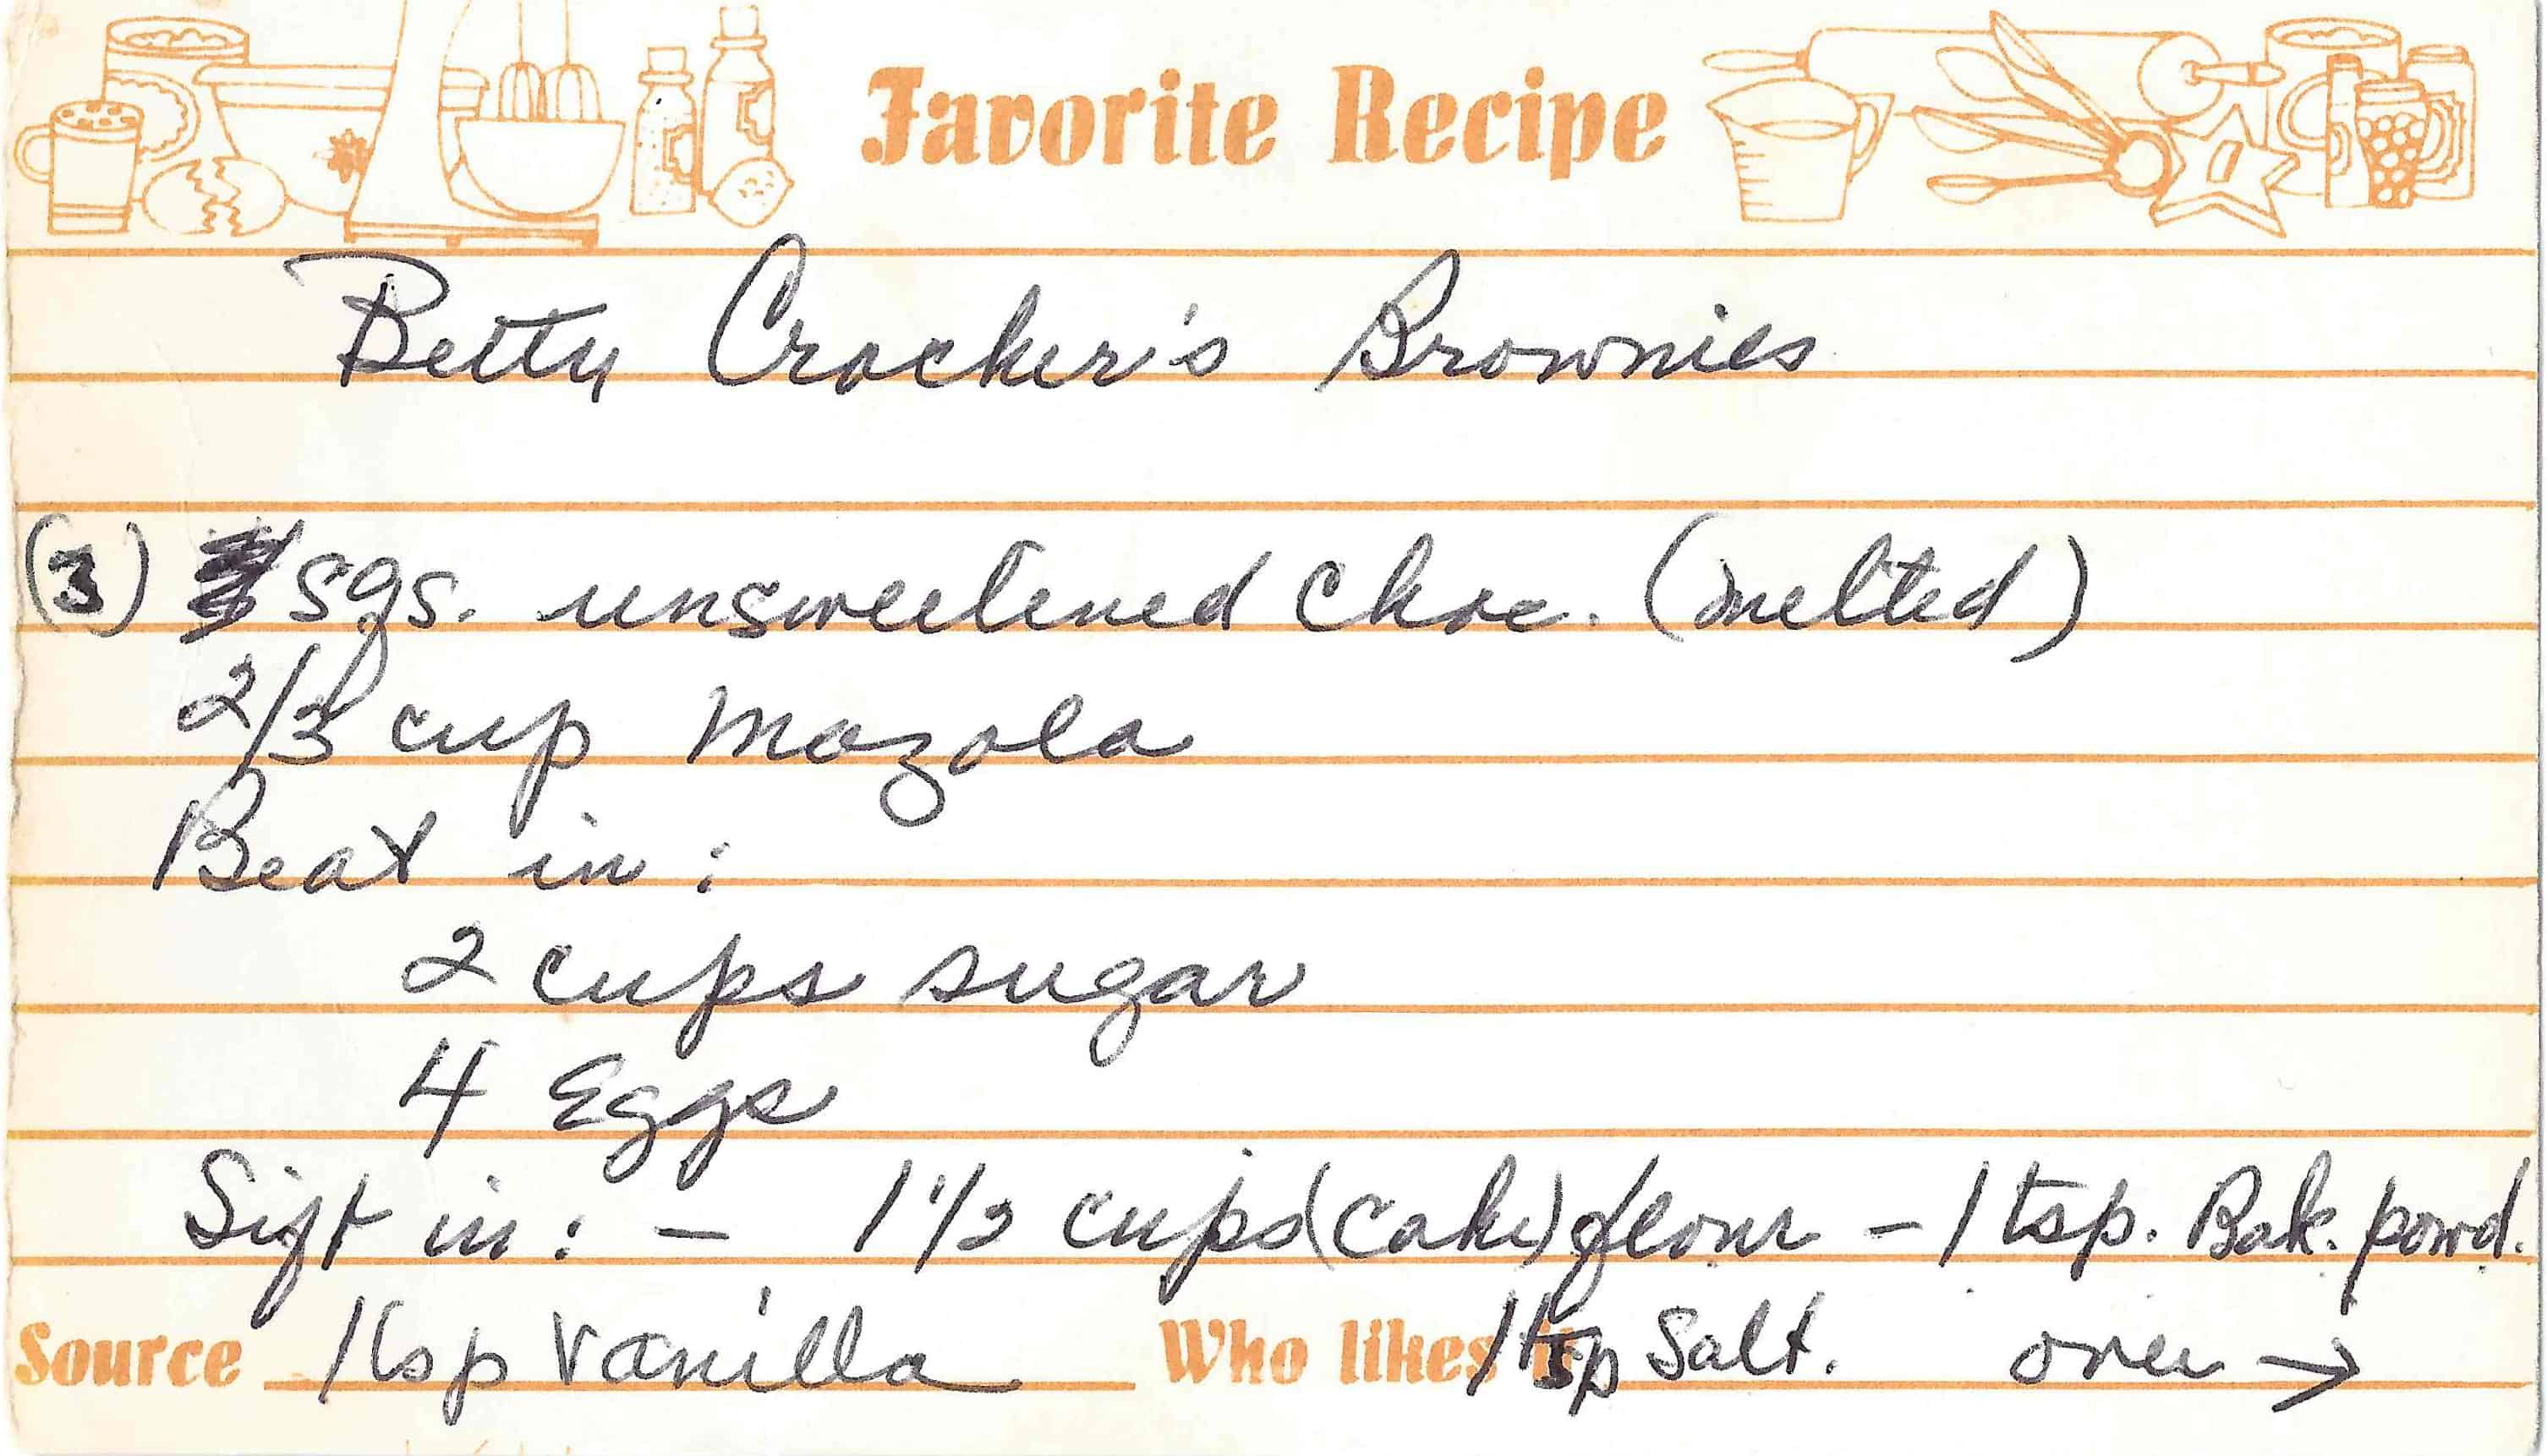 Favorite Recipe
Betty Crocker's Brownies
(3) sqs. unsweetened Choc. (melted)
2/3 cup Mazola
Beat in:
2 cups sugar
4 Eggs
Sift in: - 1 1/2 cups (Cake) flour - 1 tsp. Bak. powd.
Source 1 tsp Vanilla Who likes it 1 tsp Salt. over →